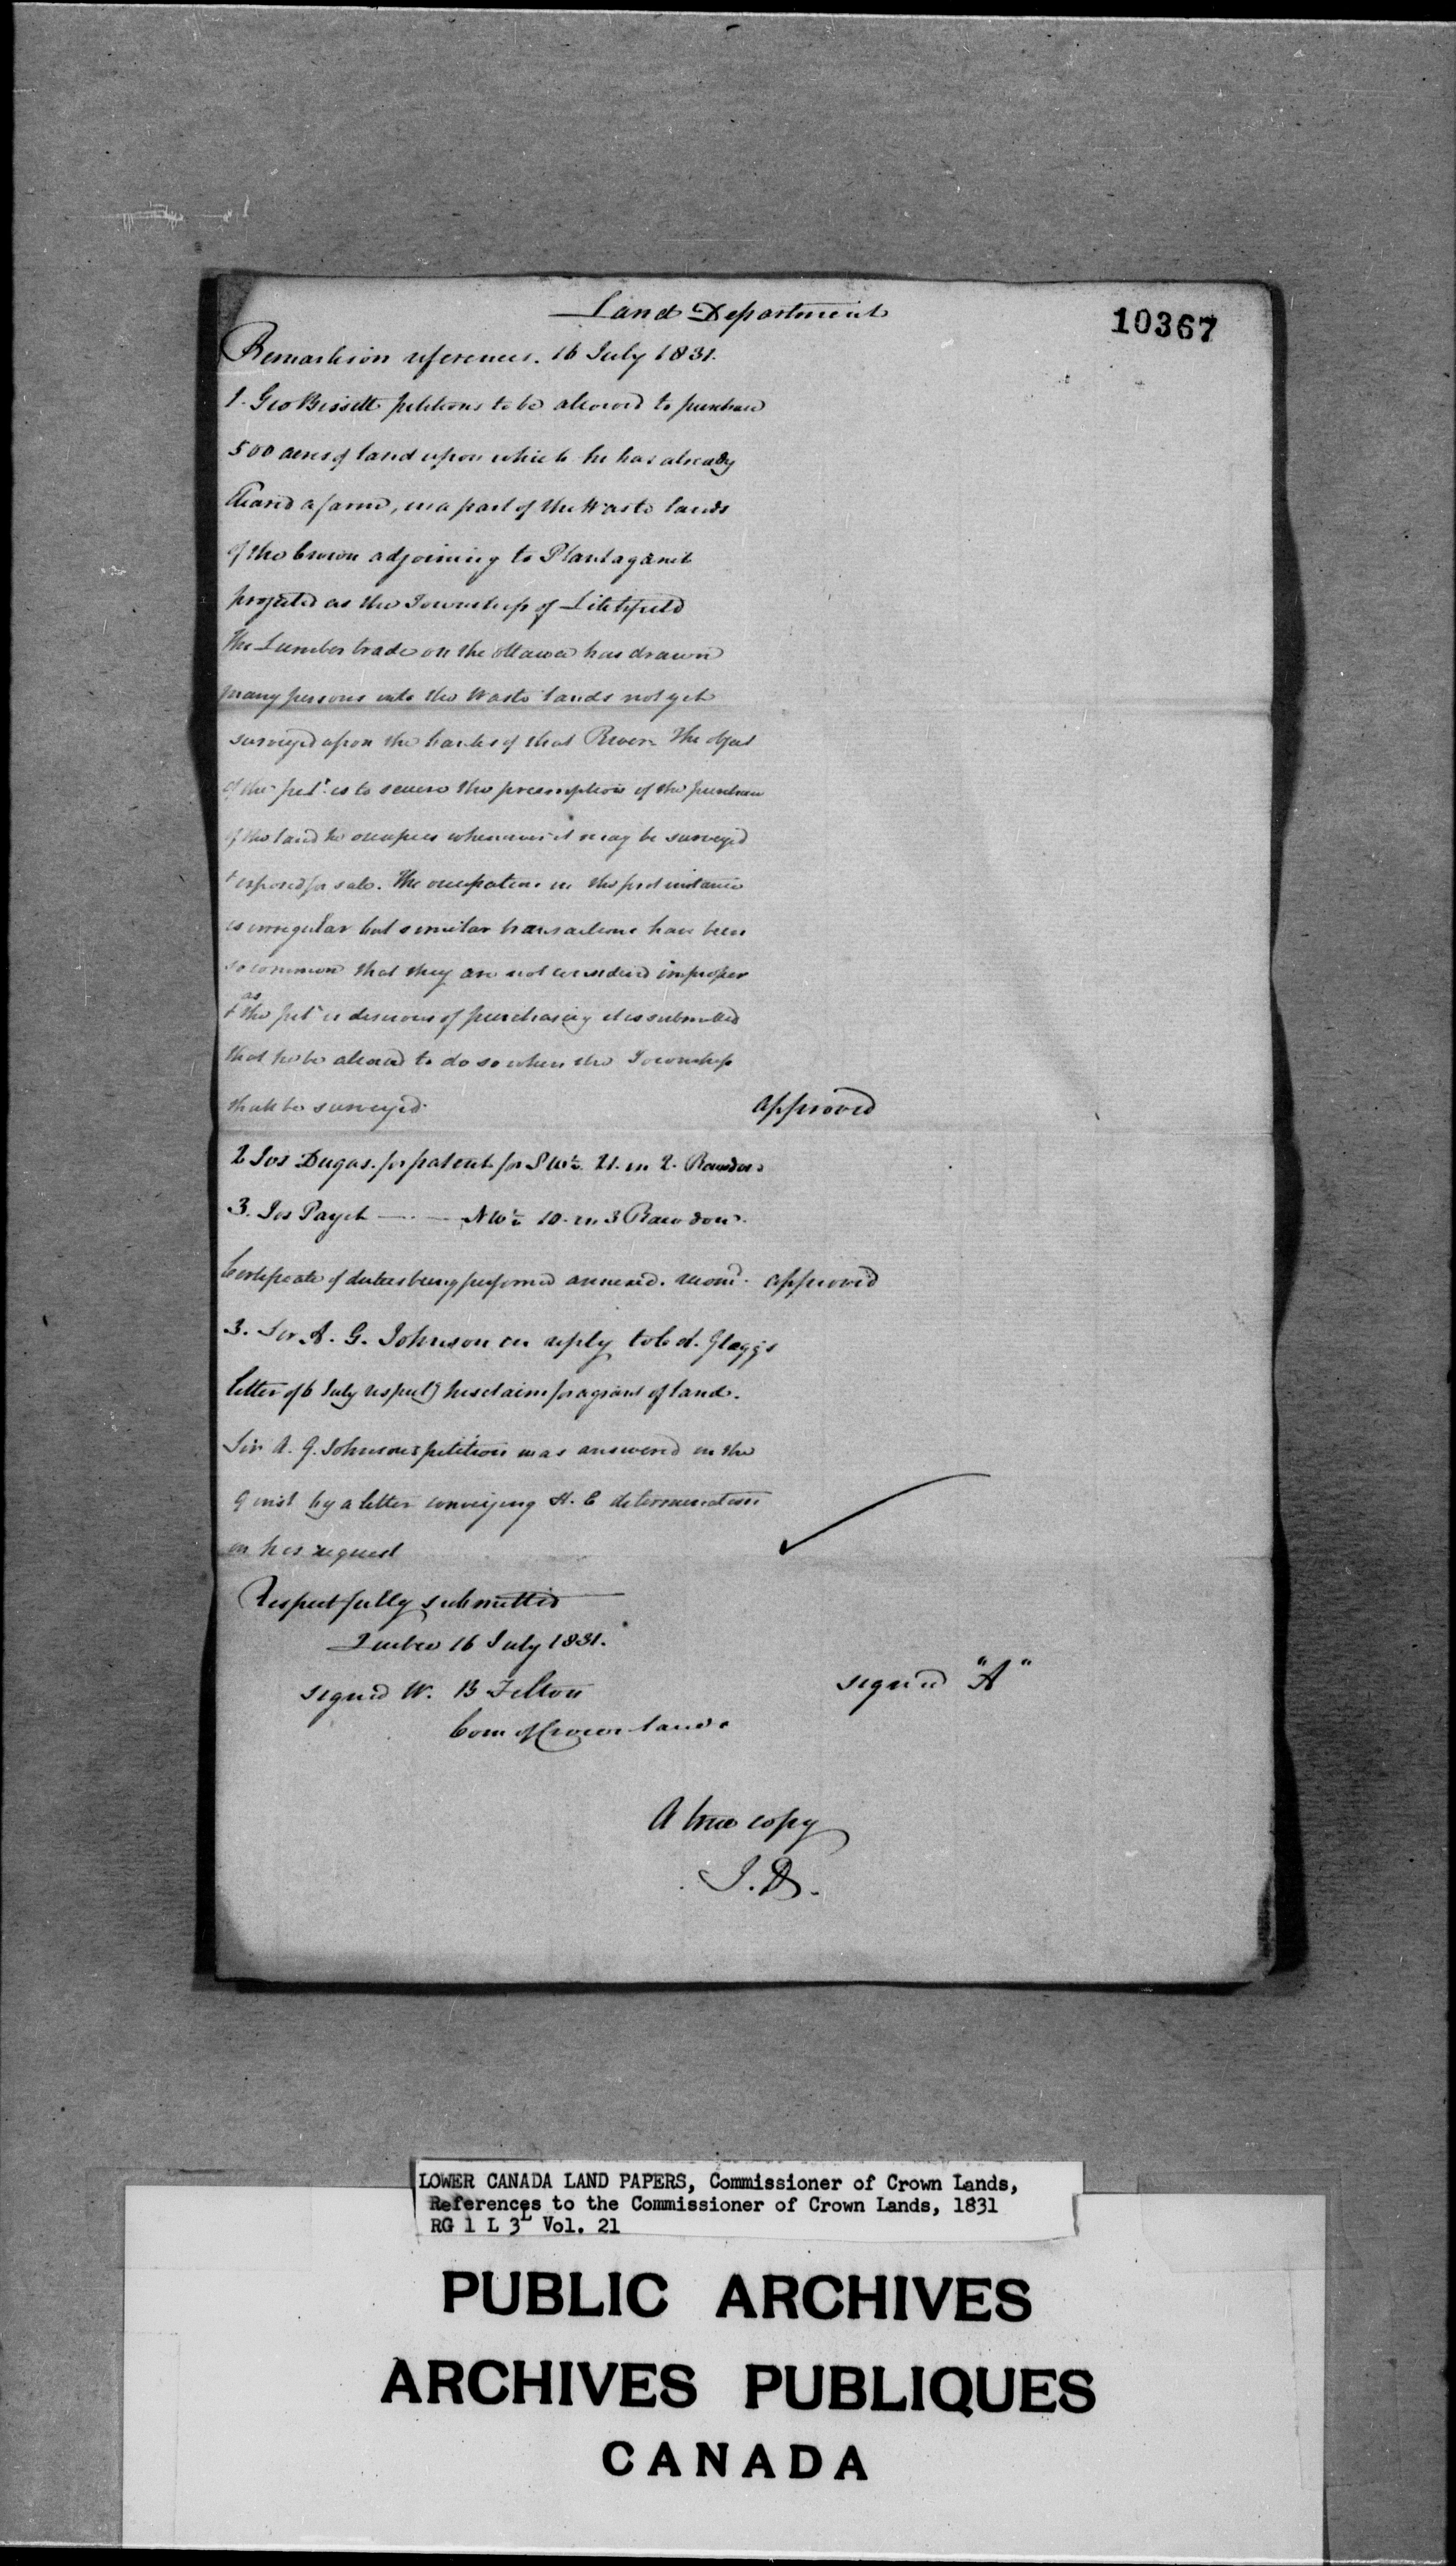 Land Department
10367
Remarks on references. 16 July 1831.
1. Geo Bissett petitions to be alowed to purchase
500 acres of land upon which he has already
Cleared a farm, in a part of the Waste lands
of the Crown adjoining to Plantaganet
projected as the Township of Litchfield
The Lumber trade on the Ottawa has drawn
many persons into the Waste lands not yet
surveyed upon the banks of that River. The object
of the petr. is to secure the preemption of the purchase
of the land he occupies whenever it may be surveyed
& exposed for sale. The occupation in the first instance
is irregular but similar transactions have been
so common that they are not considered improper
& as the petr is desirous of purchasing it is submitted
that he be alowed to do so when the Township
shall be surveyed. approved
2 Jos Dugas. for patent for SW½ 21. in 2. Rawdon
3. Jos Payet — · — NW½ 10. in 3 Rawdon.
Certificate of duties being performed annexed. recomd. approved
3. Sir A. G. Johnson in reply to Ct. Glegg's
letter of 6 July respectg his claim for a grant of land.
Sir A. G. Johnson's petition was answered on the
9 inst by a letter conveying H. E determination
on his request
Respectfully submitted
Quebec 16 July 1831.
signed W. B Felton
signed "A"
Com of Crown lands
A true copy
LOWER CANADA LAND PAPERS, Commissioner of Crown Lands,
References to the Commissioner of Crown Lands, 1831
RG 1 L 3L Vol. 21
PUBLIC ARCHIVES
ARCHIVES PUBLIQUES
CANADA